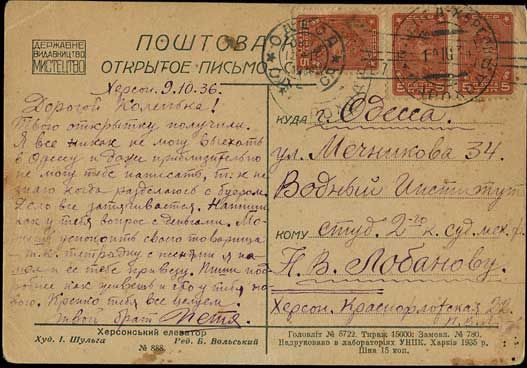 ДЕРЖАВНЕ
ВИДАВНИЦТВО
МИСТЕЦТВО
ПОШТОВА
ОТКРЫТОЕ ПИСЬМО
Херсон. 9.10.36.
Дорогой Коленька!
Твою открытку получили.
Я все никак не могу выехать
в Одессу и даже приблизительно
не могу тебе написать, т.к не
знаю когда разделаюсь с
Дело все затягивается. Напиши
как у тебя вопрос с деньгами. Мо-
успокоить своего товарища
т.к. тетрадку с песнями я
и ее тебе привезу. Пиши под-
робнее как живешь и что у тебя но-
вого. Крепко тебя все целуем.
Твой брат Петя.
КУДА г. Одесса.
ул. Мечникова 34.
Водный Институт
КОМУ студ. 2-го к. суд. мех. ф.
Н. В. Лобанову.
Херсон. Краснофлотская 22
Херсонський елеватор
Худ. І. Шульга № 888. Ред. Б. Вольський
Головліт № 5722. Тираж 15000. Замовл. № 780.
Надруковано в лабораторіях УНІК. Харків 1935 р.
Ціна 15 коп.